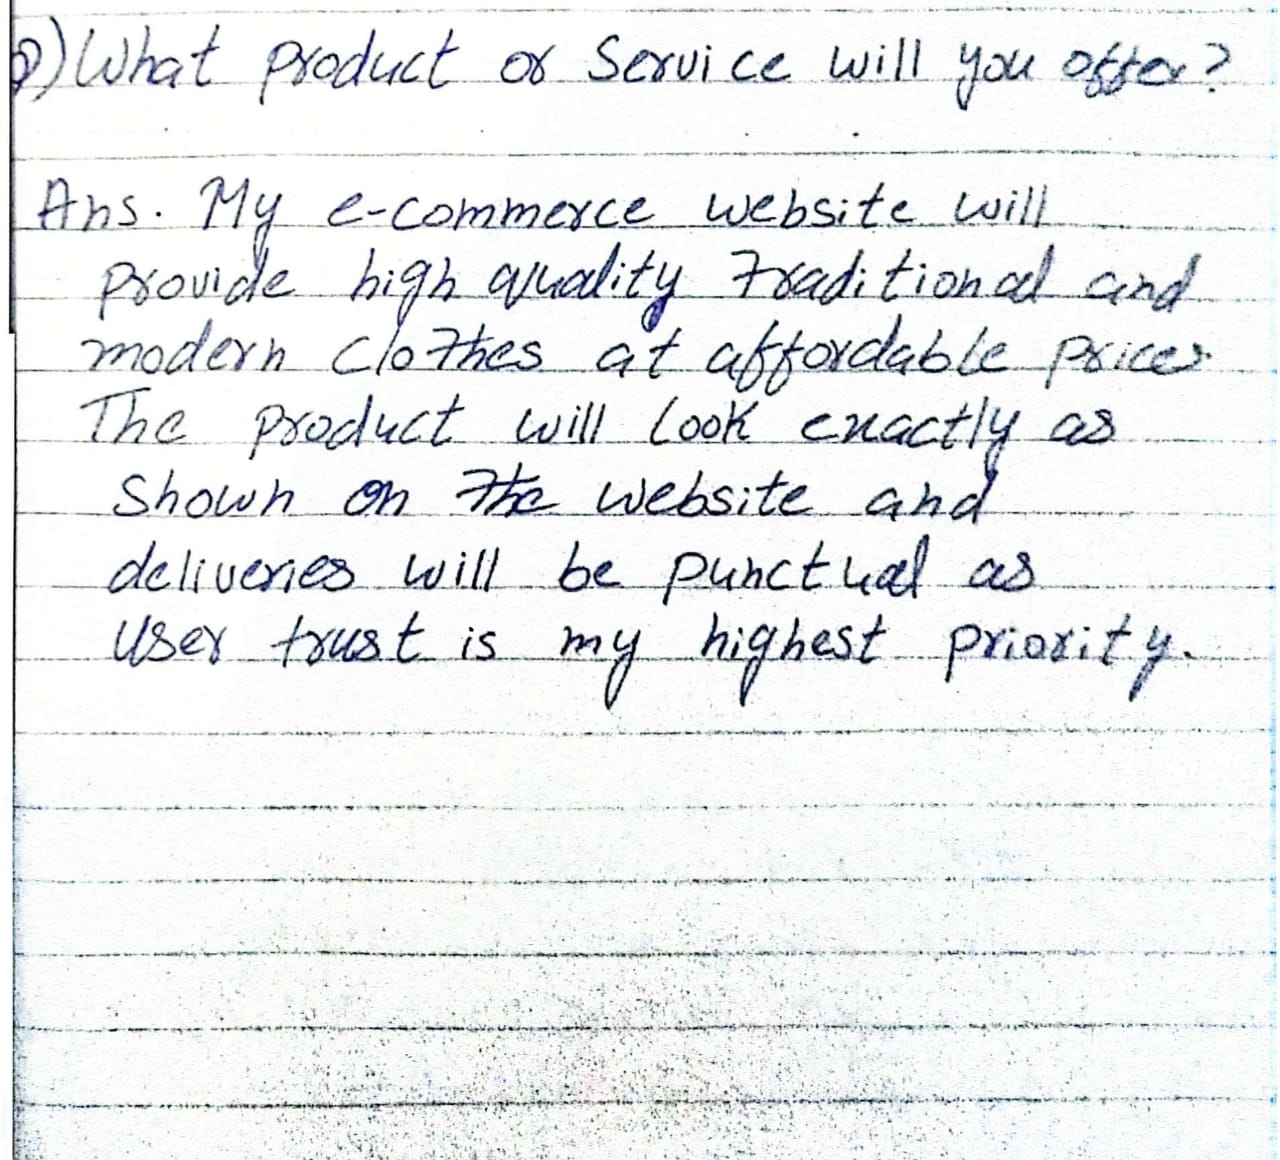 Q) What product or Service will you offer?
Ans. My e-commerce website will
provide high quality traditional and
modern clothes at affordable prices.
The product will look exactly as
shown on the website and
deliveries will be punctual as
User trust is my highest priority.